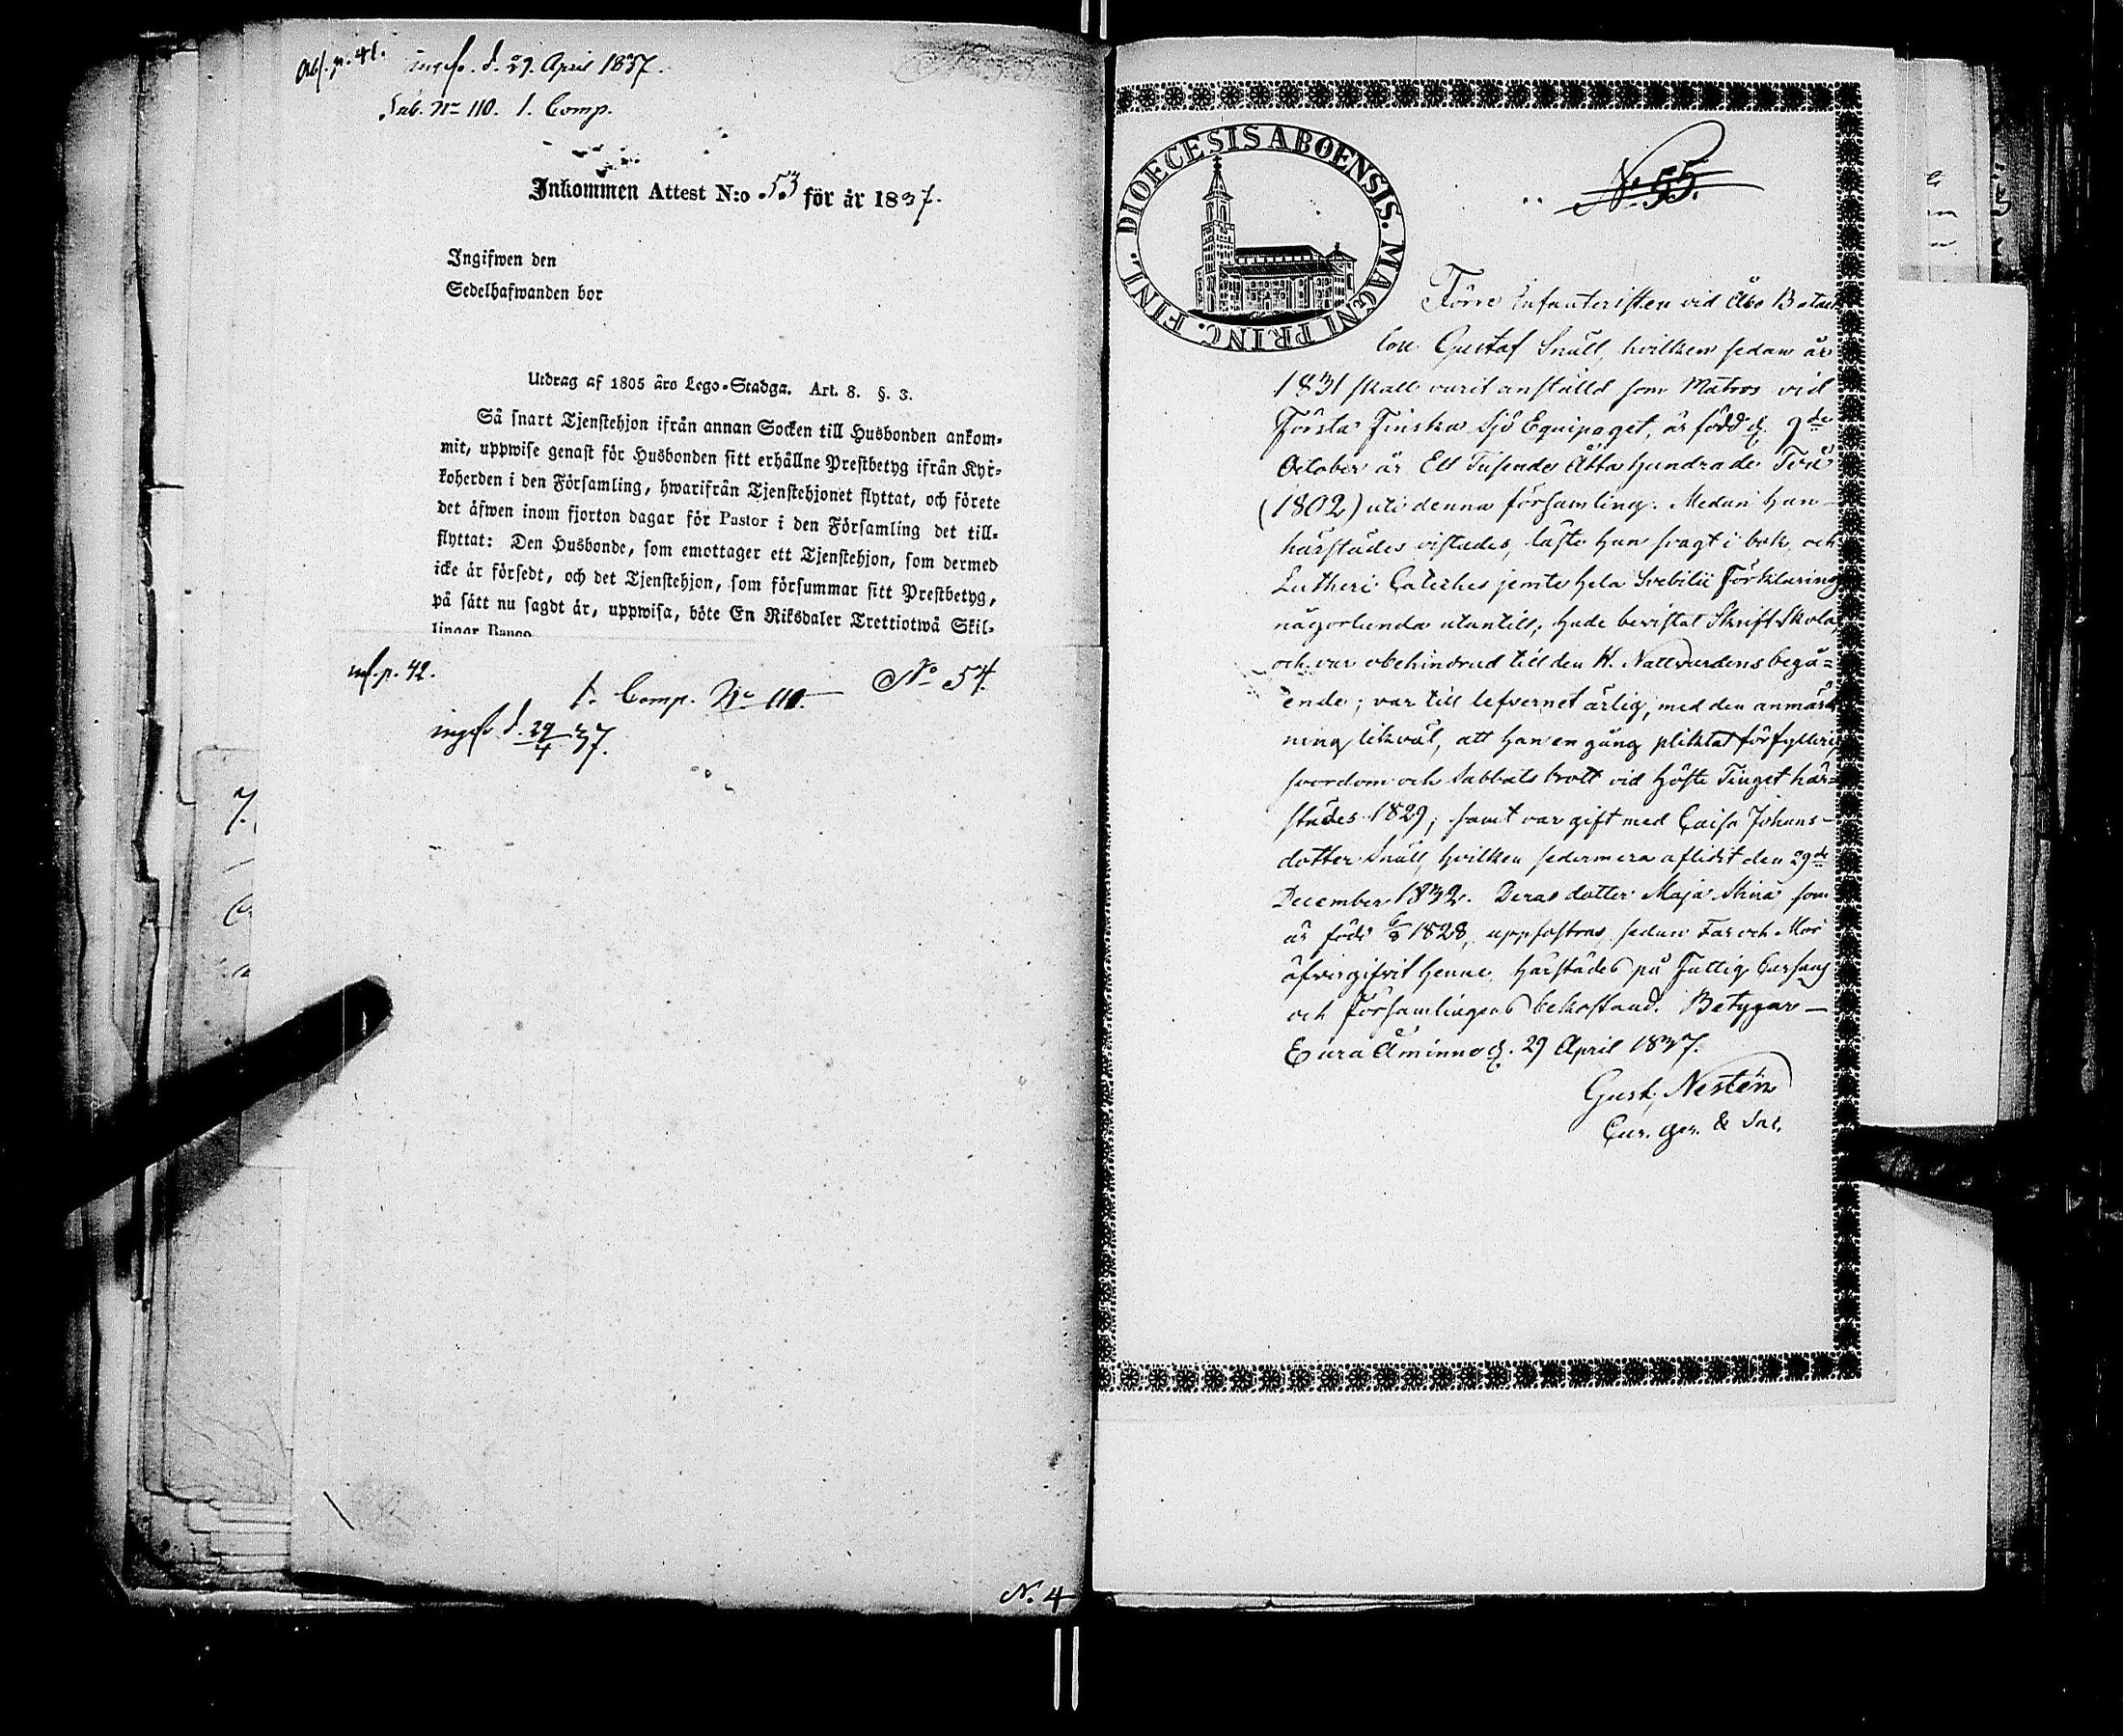 Abf. p. 41.
ingefv. d. 29. April 1837.
Tab. No 110. 1. Comp.
Inkommen Attest N:o 53 för år 1837.
Ingifwen den
Sedelhafwanden bor
Utdrag af 1805 års Lego-Stadga. Art. 8. §. 3.
Så snart Tjenstehjon ifrån annan Socken till Husbonden ankom-
mit, uppwise genast för Husbonden sitt erhållne Prestbetyg ifrån Kyr-
koherden i den Församling, hwarifrån Tjenstehjonet flyttat, och förete
det äfwen inom fjorton dagar för Pastor i den Församling det till-
flyttat: Den Husbonde, som emottager ett Tjenstehjon, som dermed
icke är försedt, och det Tjenstehjon, som försummar sitt Prestbetyg,
på sätt nu sagdt är, uppwisa, böte En Riksdaler Trettiotwå Skil-
lingar Banco
p. 42.
No 54.
1. Comp. No 110.
d. 29/4 37.
N. 4
DIOECESIS ABOENSIS. MAGNI PRINC. FINL.
No 55.
Förre Infanteristen vid Åbo Batail
lon Gustaf Snäll, hvilken sedan år
1831 skall varit anställd som Matros vid
Första Finska Sjö Equipaget, är född d. 9de
October år Ett Tusende Åtta hundrade Två
(1802) uti denna församling. Medan han
härstädes vistades, läste han svagt i bok, och
Lutheri Cateches jemte hela Svebilii Förklaring
någorlunda utantill; hade bevistat Skriftskola,
och var obehindrad till den H. Nattvardens begå-
ende; var till lefvernet ärlig, med den anmärk
ning likväl, att han en gång pliktat för fylleri,
svordom och Sabbats brott vid Höste Tinget här-
städes 1829; samt var gift med Caisa Johans-
dotter Snäll, hvilken sedermera aflidit den 29de
December 1832. Deras dotter Maja Stina som
är född 6/8 1828, uppfostras, sedan Far och Mor
öfvergifvit henne, härstädes på Fattig Cassans
och Församlingens bekostnad. Betygar
Eura Åminne d. 29 April 1837.
Gust. Nestén
& Sac.